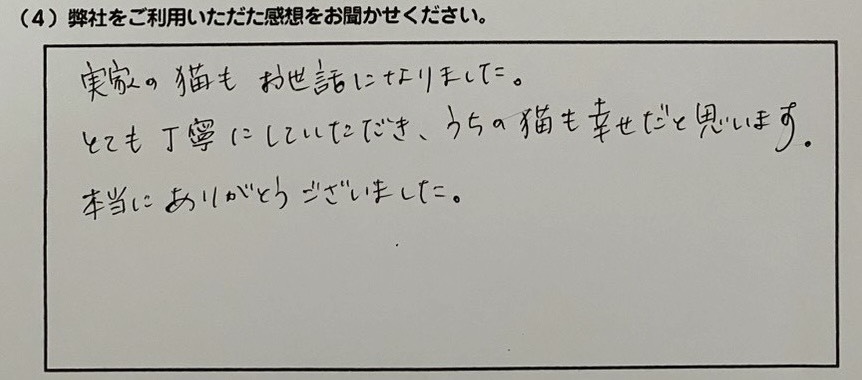 （4）弊社をご利用いただた感想をお聞かせください。
実家の猫もお世話になりました。
とても丁寧にしていただき、うちの猫も幸せだと思います。
本当にありがとうございました。